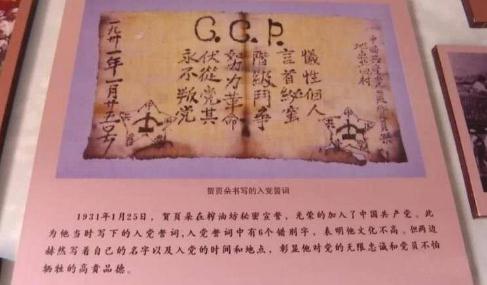 C.C.P.
地點北田村
犧性個人
言首秘蜜
階級鬥爭
努力革命
伏從党其
永不叛党
一九卅一年一月廿五号
贺页朵书写的入党誓词
1931年1月25日，贺页朵在榨油坊秘密宣誓，光荣的加入了中国共产党。此
为他当时写下的入党誓词，入党誓词中有6个错别字，表明他文化不高。但两边
赫然写着自己的名字以及入党的时间和地点，彰显他对党的无限忠诚和党员不怕
牺牲的高贵品德。